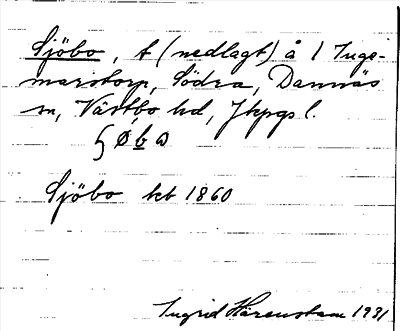 Sjöbo, t (nedlagt) å 1 Inge-
marstorp, Södra, Dannäs
sn, Västbo hd, Jkpgs l.
Sjöbo hb 1860
Ingrid Härenstam 1931